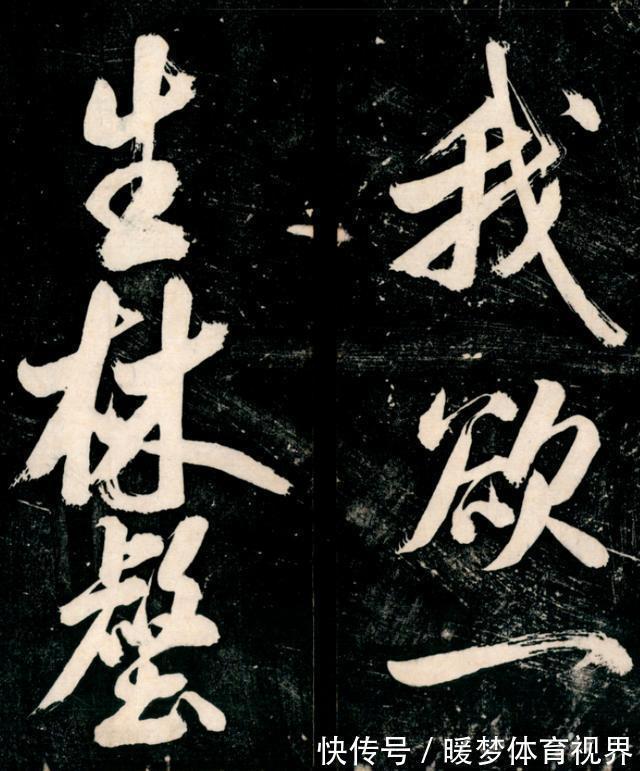 我欲一
生林壑
快传号 / 暖梦体育视界